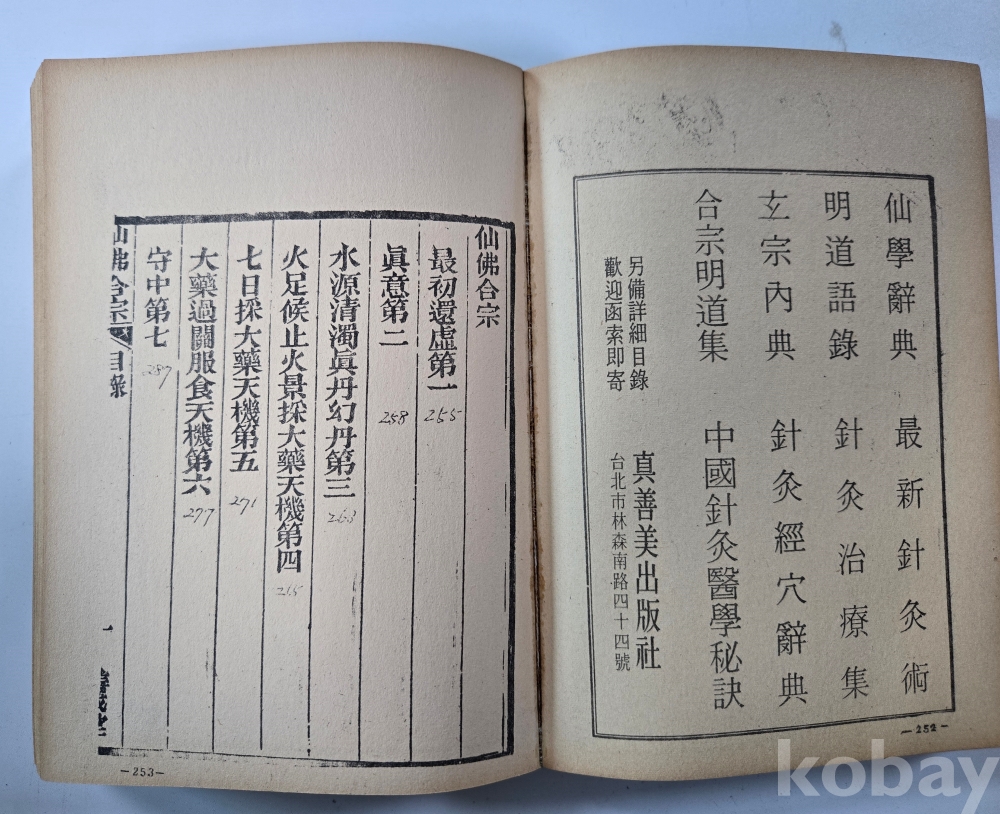 仙學辭典　最新針灸術
明道語錄　針灸治療集
玄宗內典　針灸經穴辭典
合宗明道集　中國針灸醫學秘訣
另備詳細目錄
歡迎函索即寄
真善美出版社
台北市林森南路四十四號
—252—
仙佛合宗
最初還虛第一 255
眞意第二 258
水源清濁眞丹幻丹第三 263
火足候止火景採大藥天機第四 265
七日採大藥天機第五 271
大藥過關服食天機第六 277
守中第七 287
仙佛合宗 目彔 一
—253—
kobay